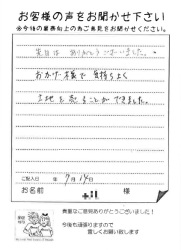 お客様の声をお聞かせ下さい
※今後の業務向上の為ご意見をお聞かせください。
先日は ありがとうございました。
おかげ様で 気持ちよく
土地を売ることができました。
ご記入日 年 9月 14日
お名前 様
貴重なご意見ありがとうございました！
今後も頑張りますので
宜しくお願い致します